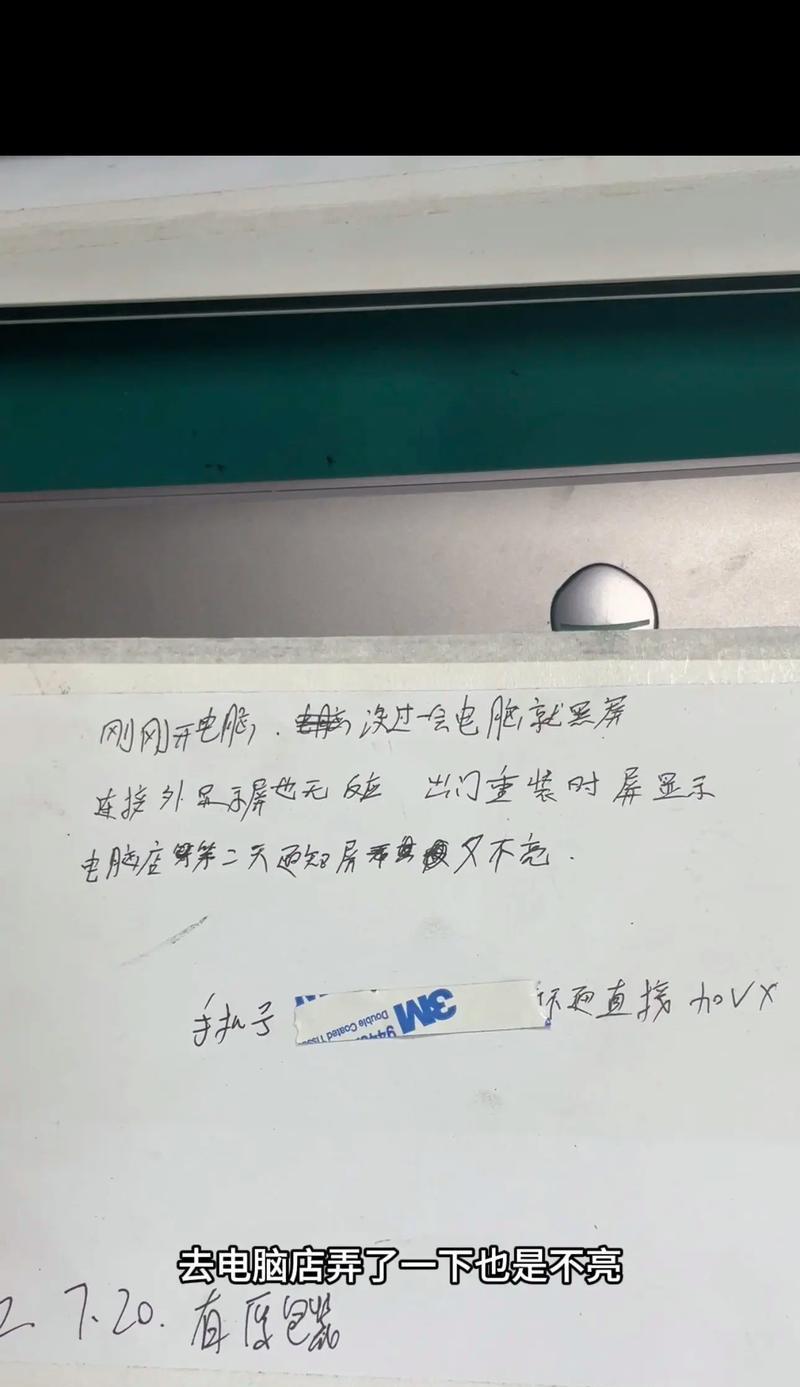 刚刚开电脑，没过一会电脑就黑屏
连接外显示屏也无反应 出门重装时屏显示
电脑店第二天通知屏又不亮.
手机号
3M
Double Coated Tiss
944
直接加VX
去电脑店弄了一下也是不亮
2. 7.20. 有原包装